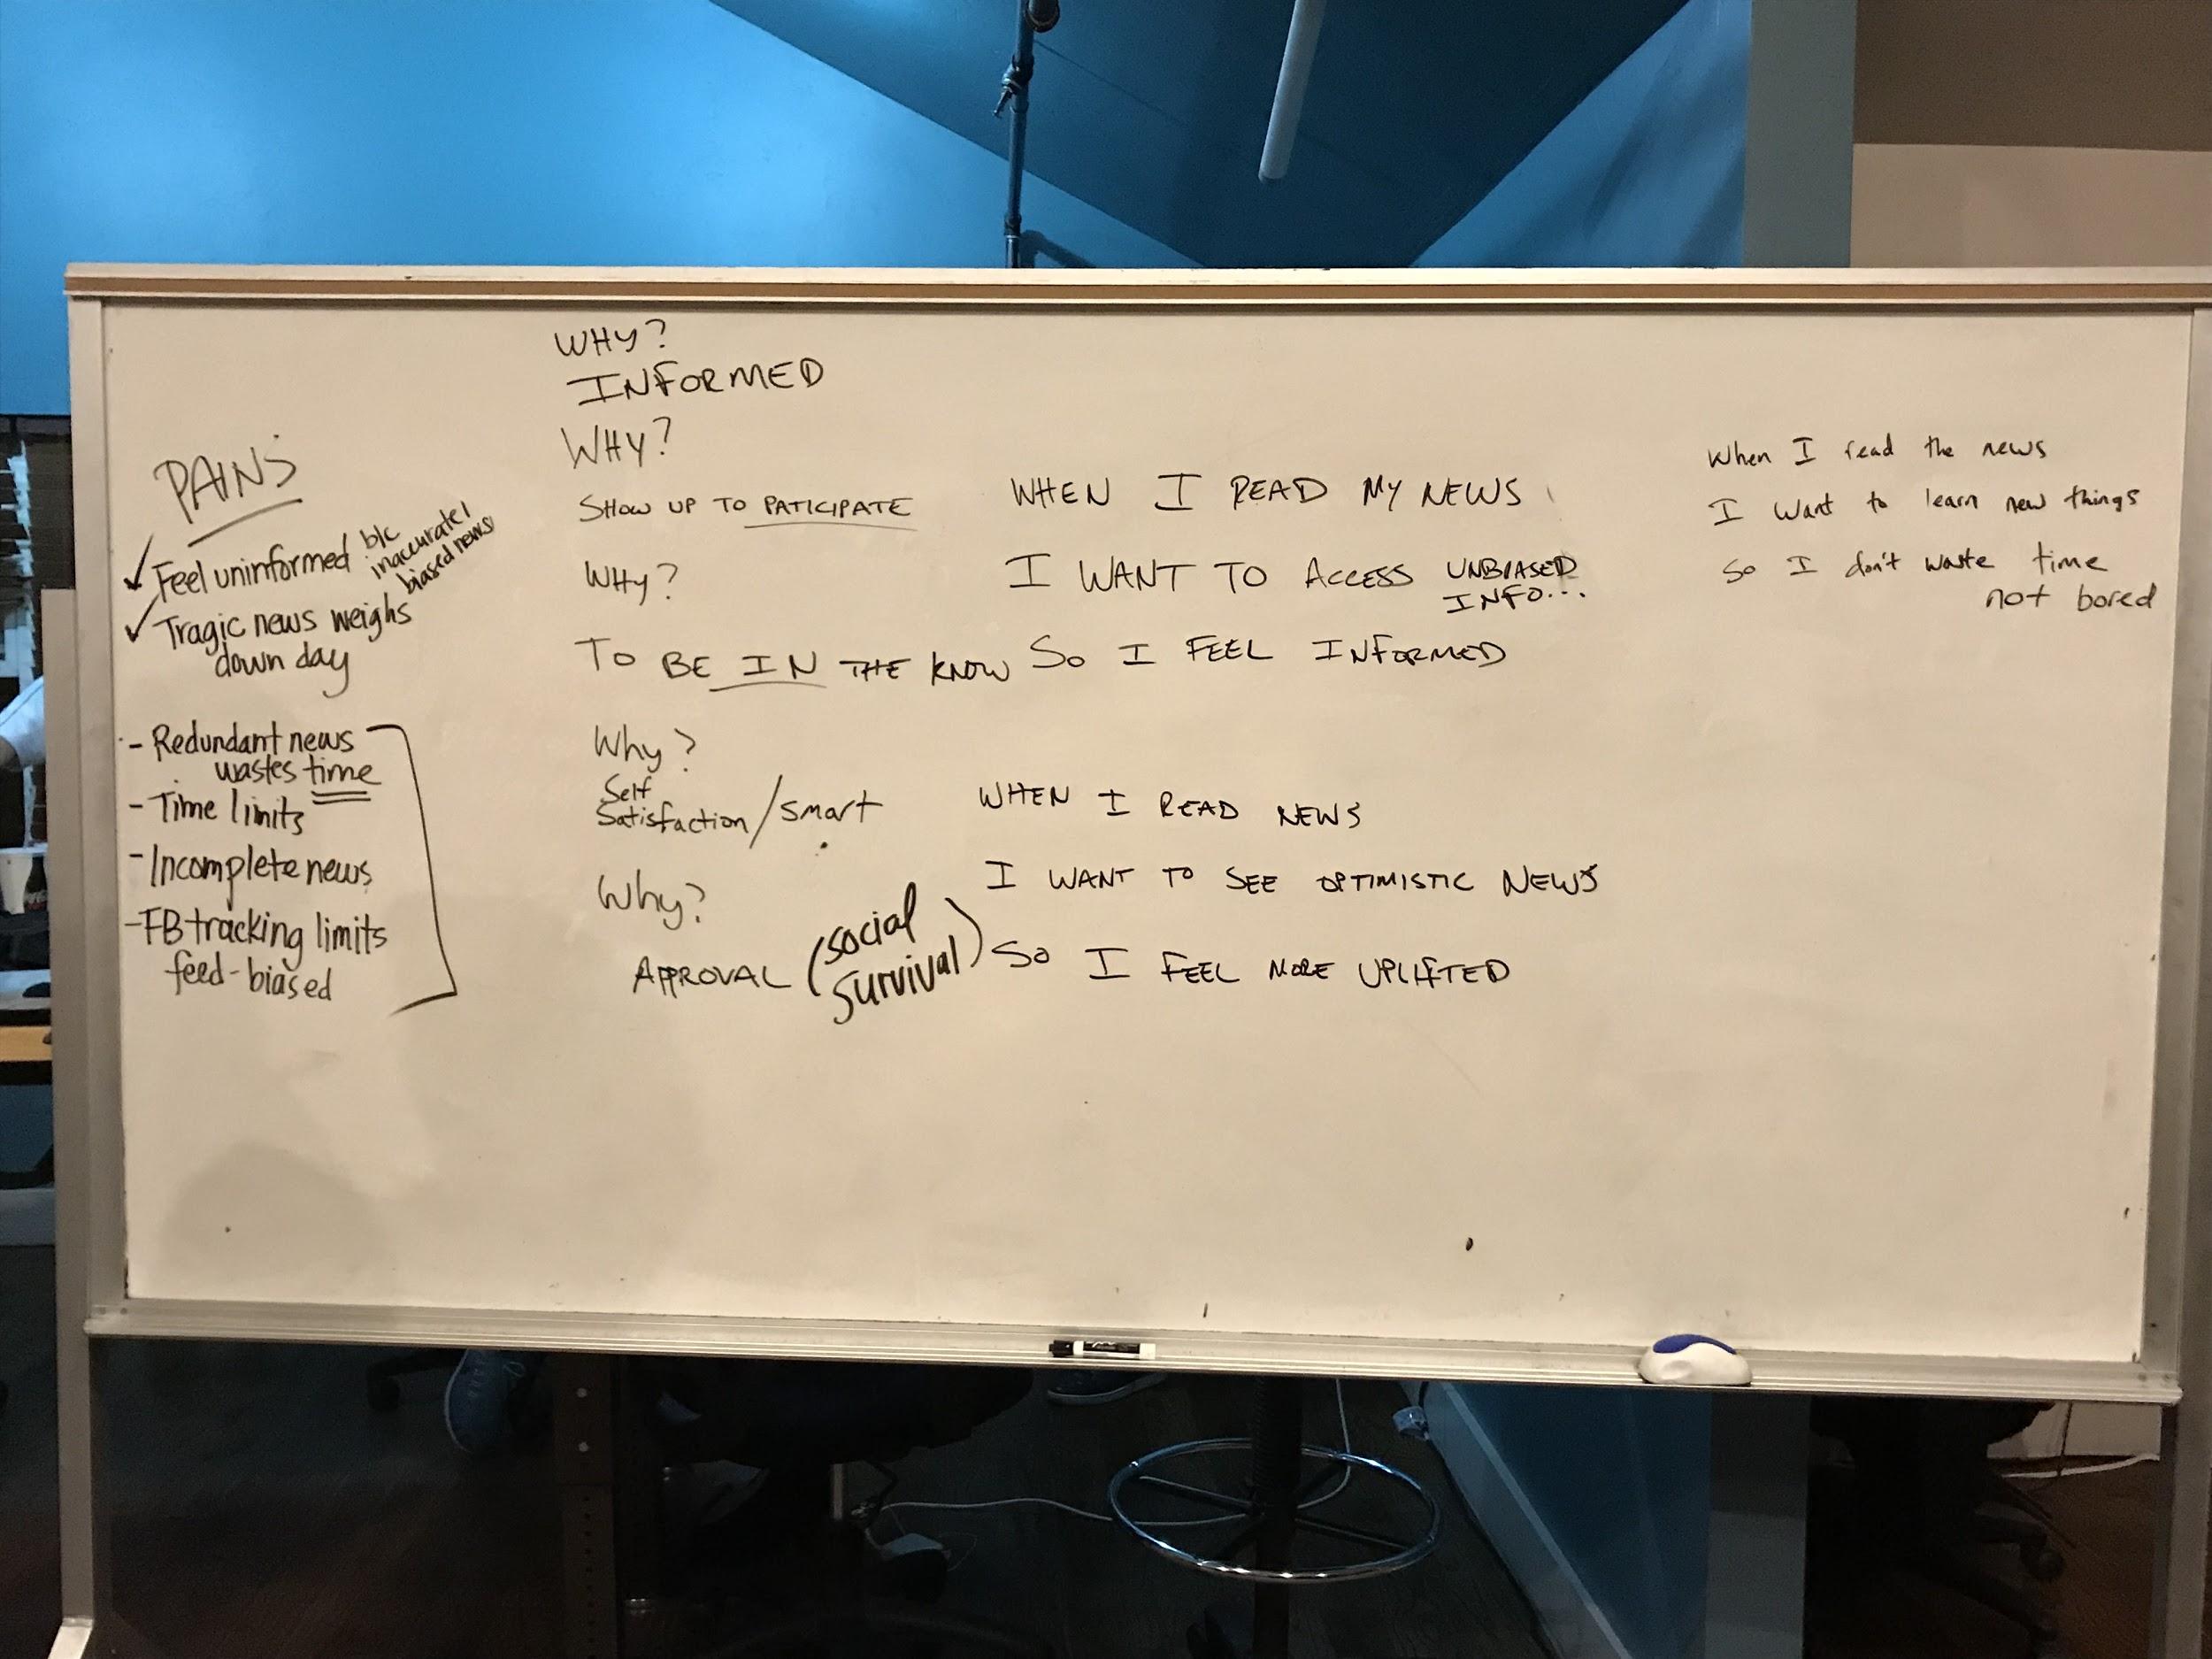 PAINS
✓ Feel uninformed b/c
inaccurate,
biased news
✓ Tragic news weighs
down day
- Redundant news
wastes time
- Time limits
- Incomplete news
- FB tracking limits
feed-biased
WHY?
INFORMED
WHY?
SHOW UP TO PATICIPATE
WHY?
TO BE IN THE KNOW
Why?
Self
Satisfaction/smart
Why?
APPROVAL (social
survival)
WHEN I READ MY NEWS
I WANT TO ACCESS UNBIASED
INFO...
SO I FEEL INFORMED
WHEN I READ NEWS
I WANT TO SEE OPTIMISTIC NEWS
SO I FEEL MORE UPLIFTED
When I read the news
I want to learn new things
So I don't waste time
not bored